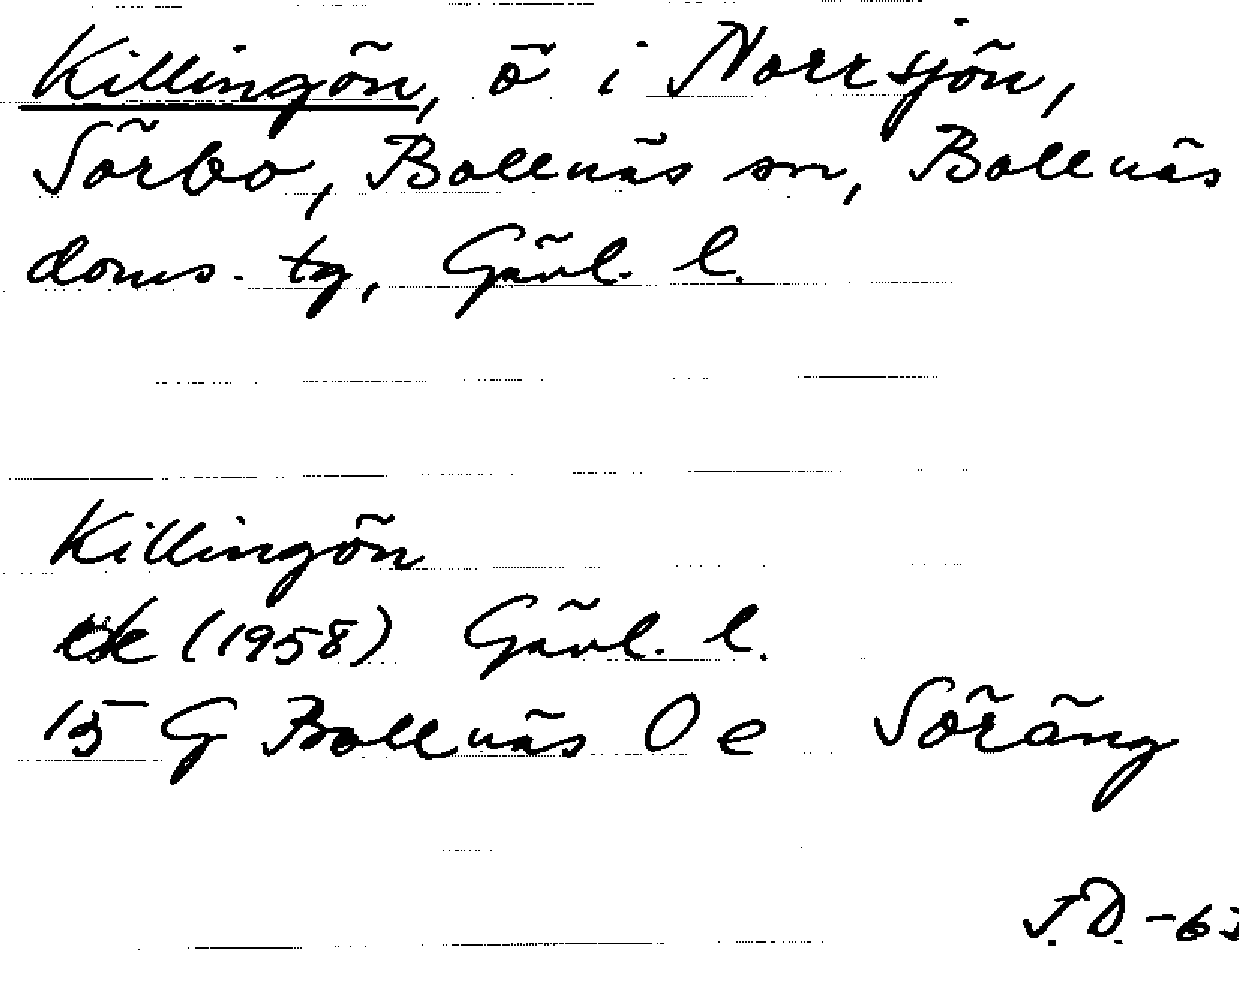 Killingön, ö i Norrsjön,
Sörbo, Bollnäs sn, Bollnäs
doms. tg, Gävl. l.
Killingön
ek (1958) Gävl. l.
15 G Bollnäs 0 e Söräng
J.D. -63